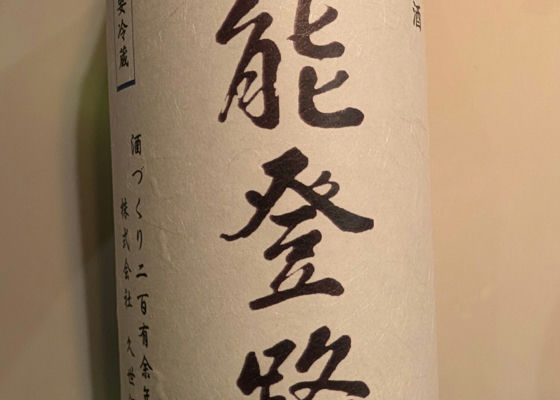 酒
能登路
要冷蔵
酒づくり二百有余年
株式会社 久世